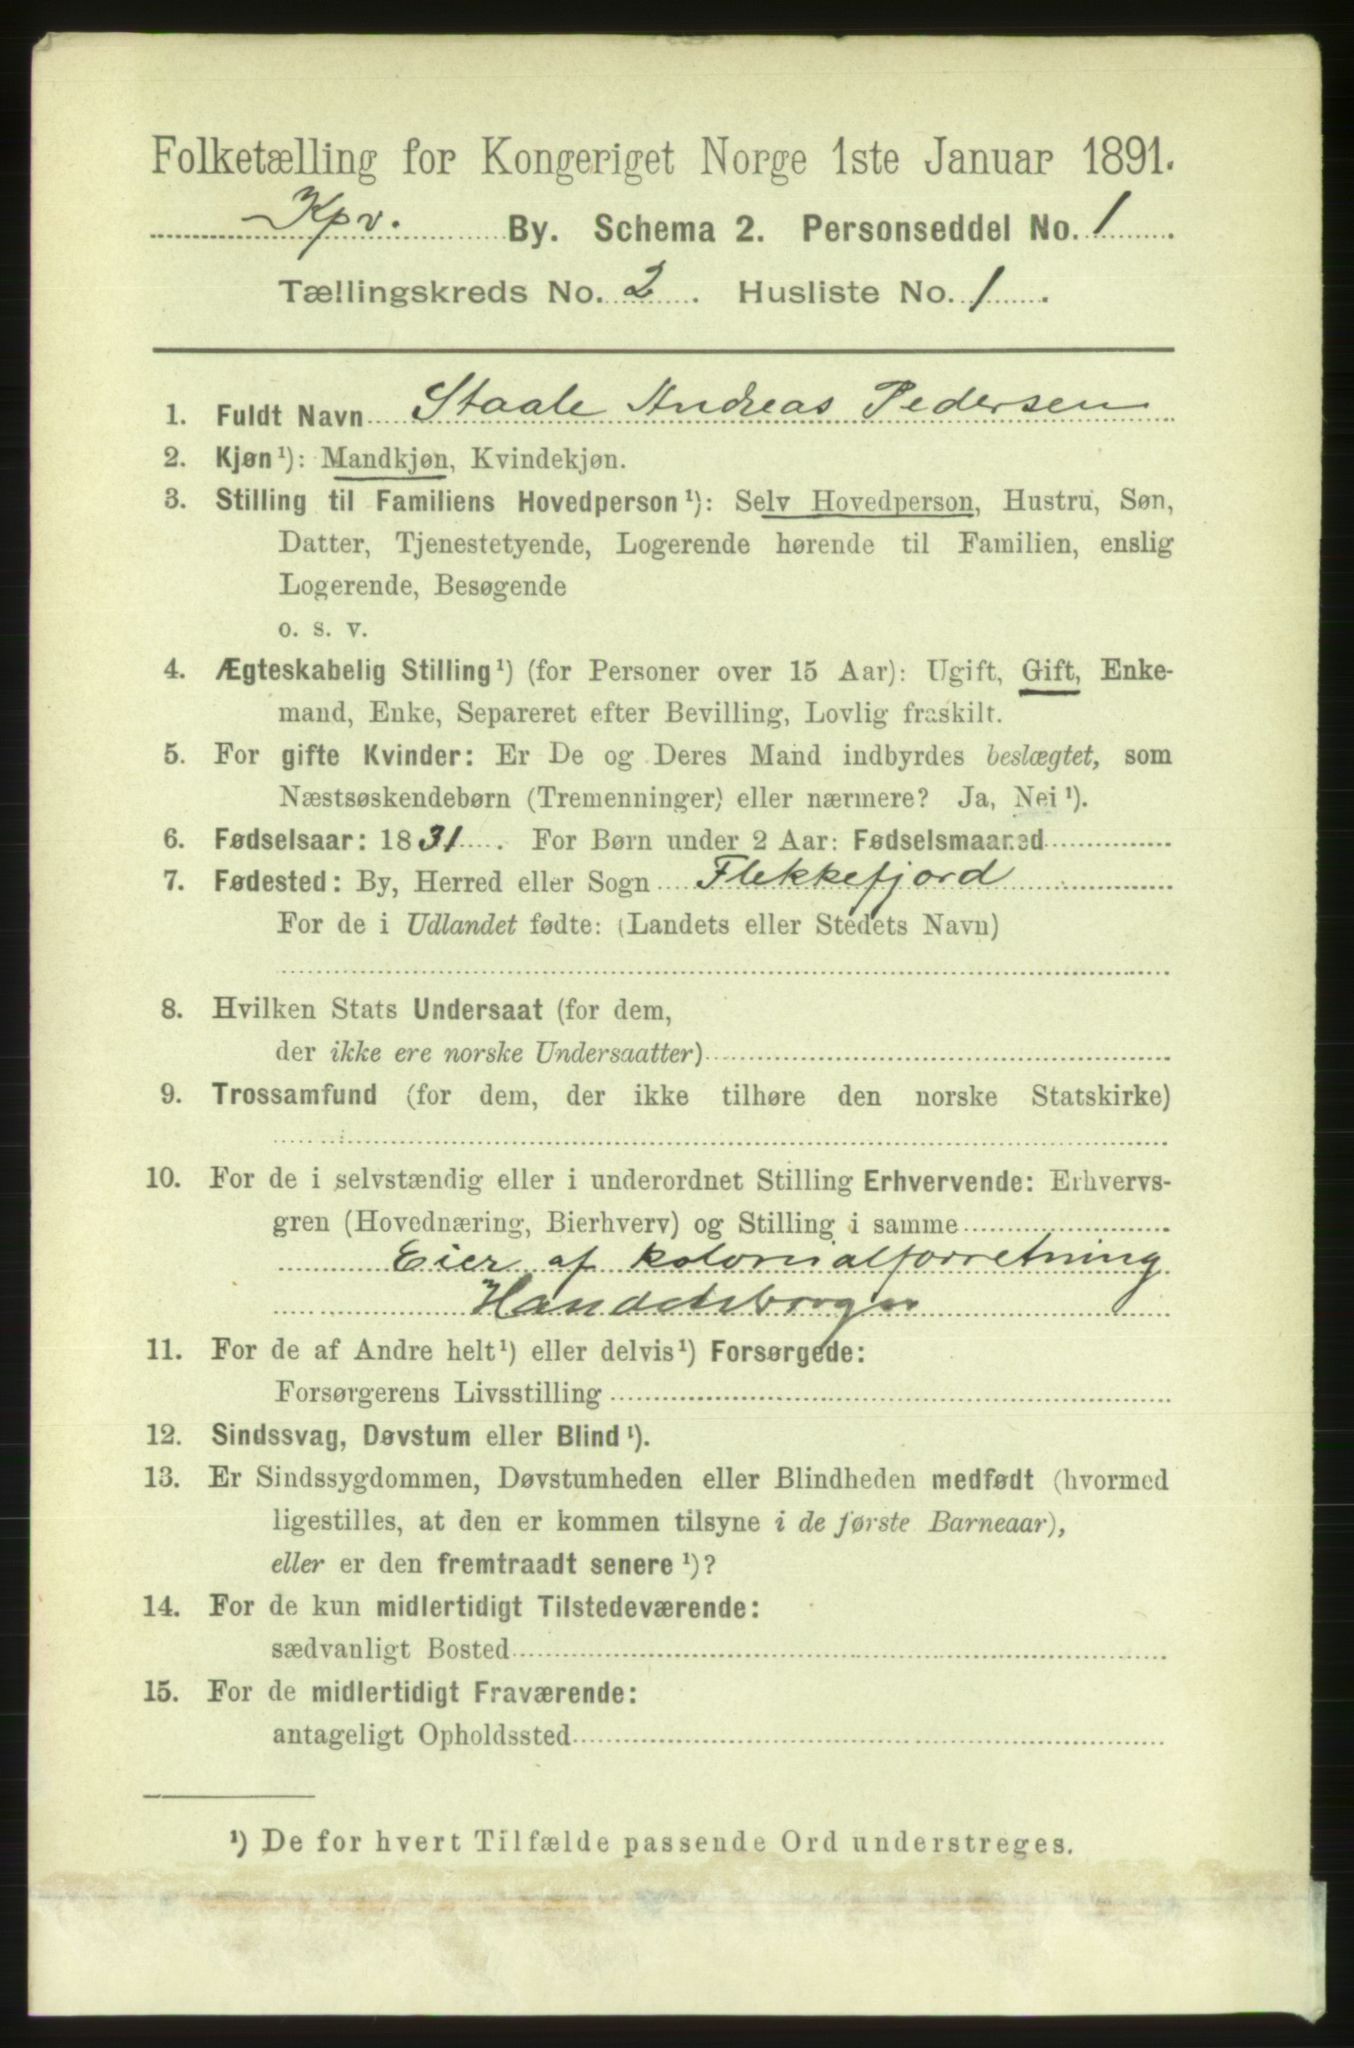 Folketælling for Kongeriget Norge 1ste Januar 1891.
Kpv. By. Schema 2. Personseddel No. 1.
Tællingskreds No. 2. Husliste No. 1.
1. Fuldt Navn Staale Andreas Pedersen
2. Kjøn¹): Mandkjøn, Kvindekjøn.
3. Stilling til Familiens Hovedperson¹): Selv Hovedperson, Hustru, Søn,
Datter, Tjenestetyende, Logerende hørende til Familien, enslig
Logerende, Besøgende
o. s. v.
4. Ægteskabelig Stilling¹) (for Personer over 15 Aar): Ugift, Gift, Enke-
mand, Enke, Separeret efter Bevilling, Lovlig fraskilt.
5. For gifte Kvinder: Er De og Deres Mand indbyrdes beslægtet, som
Næstsøskendebørn (Tremenninger) eller nærmere? Ja, Nei¹).
6. Fødselsaar: 1831. For Børn under 2 Aar: Fødselsmaaned
7. Fødested: By, Herred eller Sogn Flekkefjord
For de i Udlandet fødte: (Landets eller Stedets Navn)
8. Hvilken Stats Undersaat (for dem,
der ikke ere norske Undersaatter)
9. Trossamfund (for dem, der ikke tilhøre den norske Statskirke)
10. For de i selvstændig eller i underordnet Stilling Erhvervende: Erhvervs-
gren (Hovednæring, Bierhverv) og Stilling i samme
Eier af kolonialforretning
Handelsborger
11. For de af Andre helt¹) eller delvis¹) Forsørgede:
Forsørgerens Livsstilling
12. Sindssvag, Døvstum eller Blind¹).
13. Er Sindssygdommen, Døvstumheden eller Blindheden medfødt (hvormed
ligestilles, at den er kommen tilsyne i de første Barneaar),
eller er den fremtraadt senere¹)?
14. For de kun midlertidigt Tilstedeværende:
sædvanligt Bosted
15. For de midlertidigt Fraværende:
antageligt Opholdssted
¹) De for hvert Tilfælde passende Ord understreges.